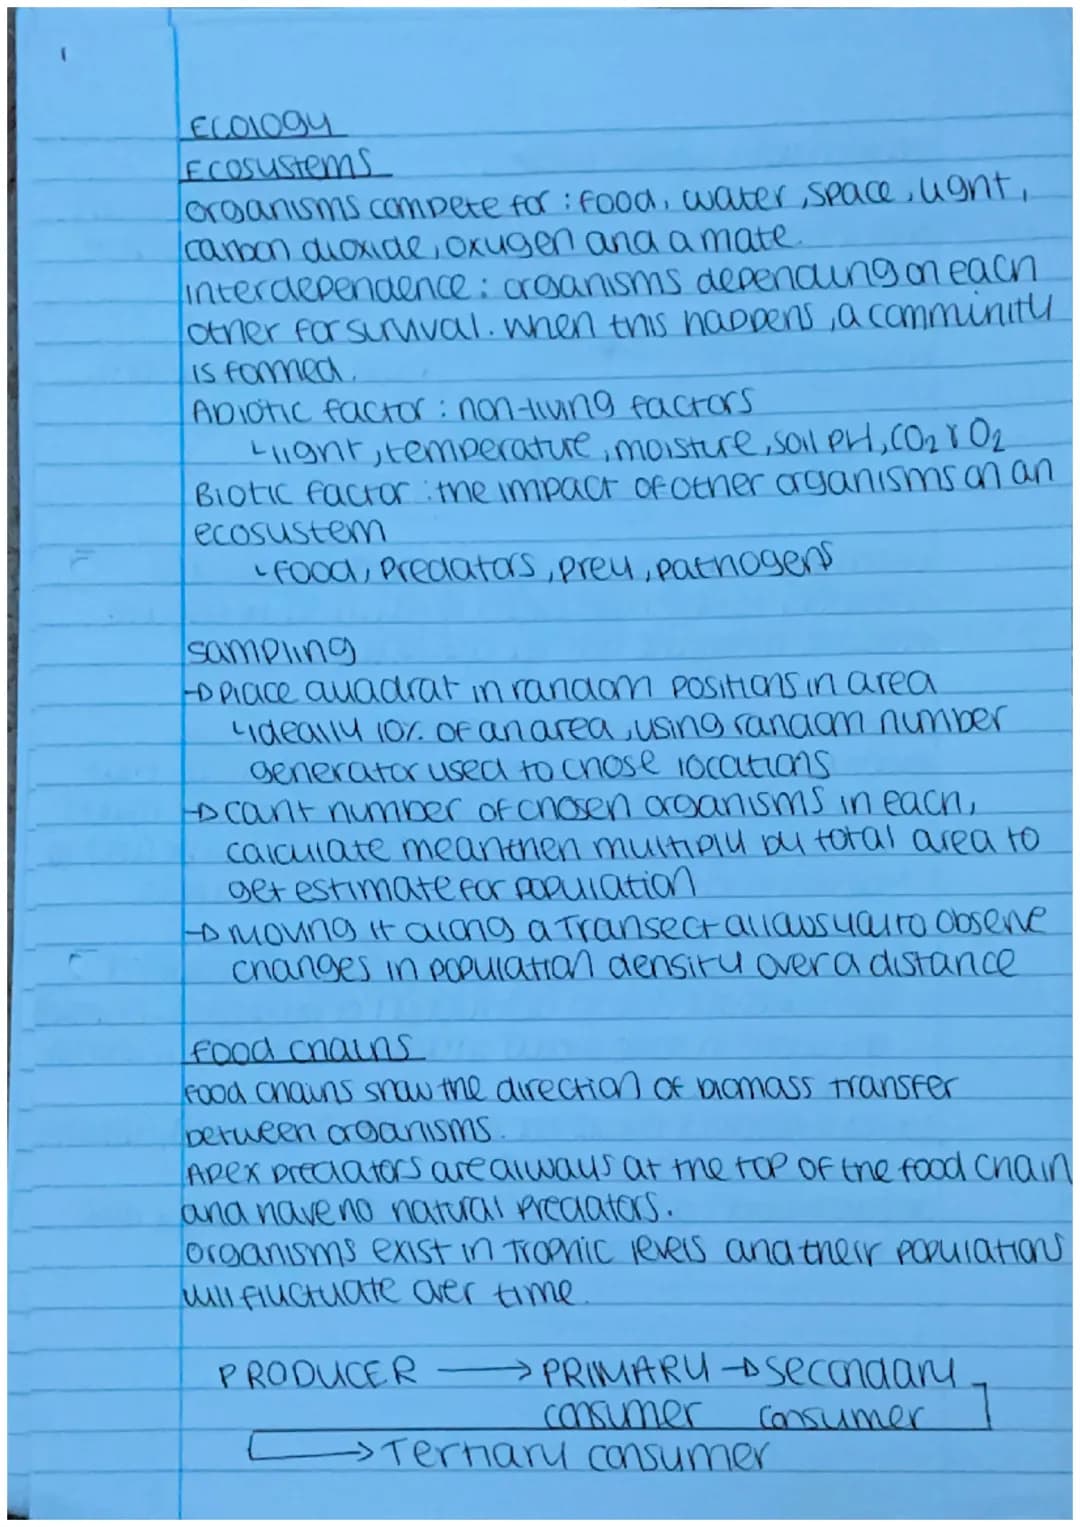 Ecology
Ecosystems
organisms compete for : food, water, space, light,
carbon dioxide, oxygen and a mate.
interdependence : organisms depending on each
other for survival. when this happens, a comminity
is formed.
Abiotic factor : non-living factors
↳light, temperature, moisture, soil pH, CO₂ & O₂
Biotic factor : the impact of other organisms on an
ecosystem
↳food, predators, prey, pathogens
sampling
→Place quadrat in random positions in area
↳ideally 10% of an area, using random number
generator used to chose locations
→count number of chosen organisms in each,
calculate mean then multiply by total area to
get estimate for population
→moving it along a Transect allows you to observe
changes in population density over a distance
food chains
food chains show the direction of biomass transfer
between organisms.
Apex predators are always at the top of the food chain
and have no natural predators.
organisms exist in Trophic levels and their populations
will fluctuate over time.
PRODUCER → PRIMARY → secondary
consumer consumer
→ Tertiary consumer